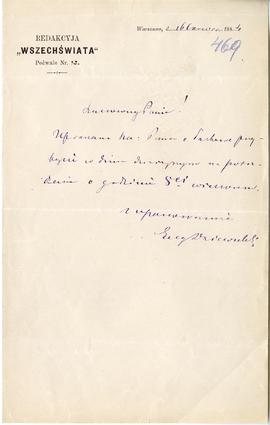 REDAKCYJA
„WSZECHŚWIATA"
Podwale Nr.
Warszawa, 188
469
Szanowny Panie!
Upraszam Pana o łaskawe przy-
bycie w dniu dzisiejszym na posie-
dzenie o godzinie 8ei wieczorem.
Z uszanowaniem